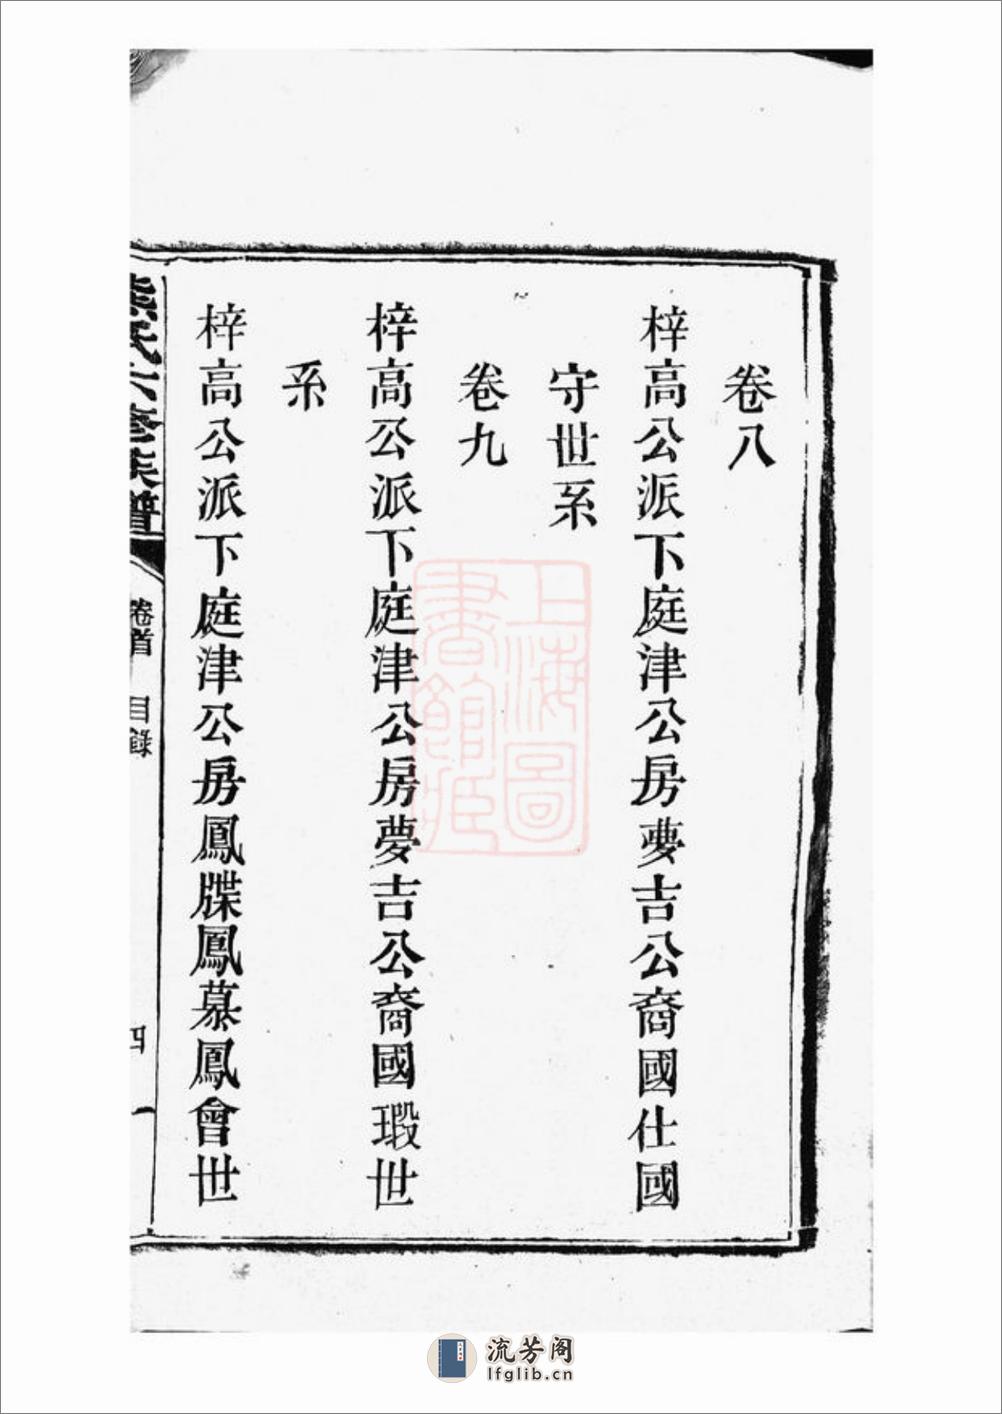 卷八
梓高公派下庭津公房夢吉公裔國仕國
守世系
卷九
梓高公派下庭津公房夢吉公裔國瑕世
系
梓高公派下庭津公房鳳牒鳳慕鳳會世
熊氏六修族譜
卷首 目錄
四
上海圖書館藏
流芳阁
lfglib.cn